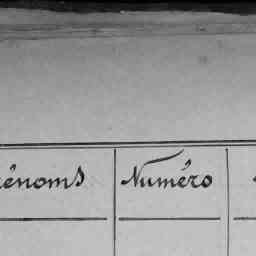 rénoms Numéro